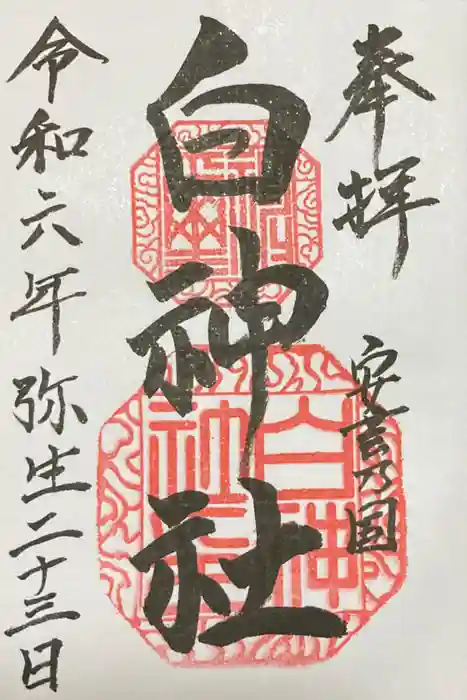 奉拝
安芸乃国
白神社
令和六年弥生二十三日
白神
社